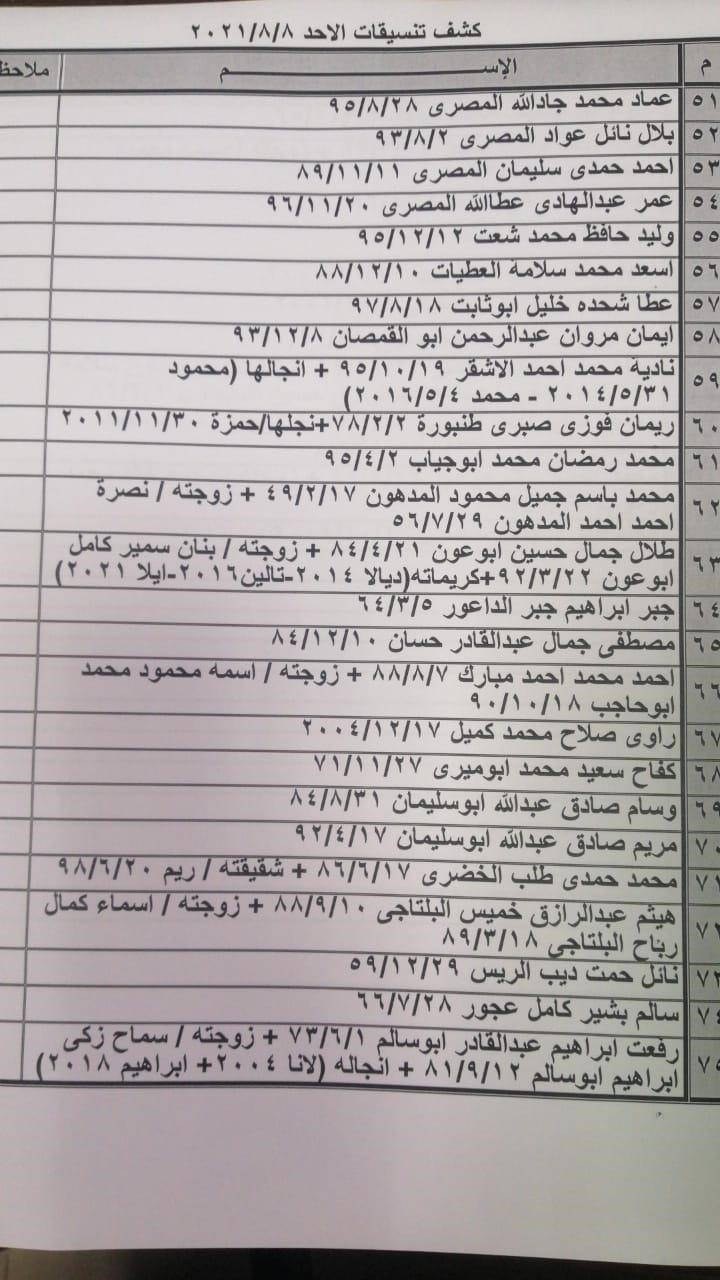 كشف تنسيقات الاحد ٢٠٢١/٨/٨
م الإســـم ملاحظ
٥١ عماد محمد جادالله المصرى ٩٥/٨/٢٨
٥٢ بلال نائل عواد المصرى ٩٣/٨/٢
٥٣ احمد حمدى سليمان المصرى ٨٩/١١/١١
٥٤ عمر عبدالهادى عطاالله المصرى ٩٦/١١/٢٠
٥٥ وليد حافظ محمد شعت ٩٥/١٢/١٢
٥٦ اسعد محمد سلامة العطيات ٨٨/١٢/١٠
٥٧ عطا شحده خليل ابوثابت ٩٧/٨/١٨
٥٨ ايمان مروان عبدالرحمن ابو القمصان ٩٣/١٢/٨
٥٩ نادية محمد احمد الاشقر ٩٥/١٠/١٩ + انجالها (محمود
٢٠١٤/٥/٣١ - محمد ٢٠١٦/٥/٤)
٦٠ ريمان فوزى صبرى طنبورة ٧٨/٢/٢+نجلها/حمزة ٢٠١١/١١/٣٠
٦١ محمد رمضان محمد ابوجياب ٩٥/٤/٢
٦٢ محمد باسم جميل محمود المدهون ٤٩/٢/١٧ + زوجته / نصرة
احمد احمد المدهون ٥٦/٧/٢٩
٦٣ طلال جمال حسين ابوعون ٨٤/٤/٢١ + زوجته / بنان سمير كامل
ابوعون ٩٢/٣/٢٢+كريماته(ديالا ٢٠١٤-تالين٢٠١٦-ايلا ٢٠٢١)
٦٤ جبر ابراهيم جبر الداعور ٦٤/٣/٥
٦٥ مصطفى جمال عبدالقادر حسان ٨٤/١٢/١٠
٦٦ احمد محمد احمد مبارك ٨٨/٨/٧ + زوجته / اسمه محمود محمد
ابوحاجب ٩٠/١٠/١٨
٦٧ راوى صلاح محمد كميل ٢٠٠٤/١٢/١٧
٦٨ كفاح سعيد محمد ابوميرى ٧١/١١/٢٧
٦٩ وسام صادق عبدالله ابوسليمان ٨٤/٨/٣١
٧٠ مريم صادق عبدالله ابوسليمان ٩٢/٤/١٧
٧١ محمد حمدى طلب الخضرى ٨٦/٦/١٧ + شقيقته / ريم ٩٨/٦/٢٠
٧٢ هيثم عبدالرازق خميس البلتاجى ٨٨/٩/١٠ + زوجته / اسماء كمال
رباح البلتاجى ٨٩/٣/١٨
٧٣ نائل حمت ديب الريس ٥٩/١٢/٢٩
٧٤ سالم بشير كامل عجور ٦٦/٧/٢٨
٧٥ رفعت ابراهيم عبدالقادر ابوسالم ٧٣/٦/١ + زوجته / سماح زكى
ابراهيم ابوسالم ٨١/٩/١٢ + انجاله (لانا ٢٠٠٤+ ابراهيم ٢٠١٨)